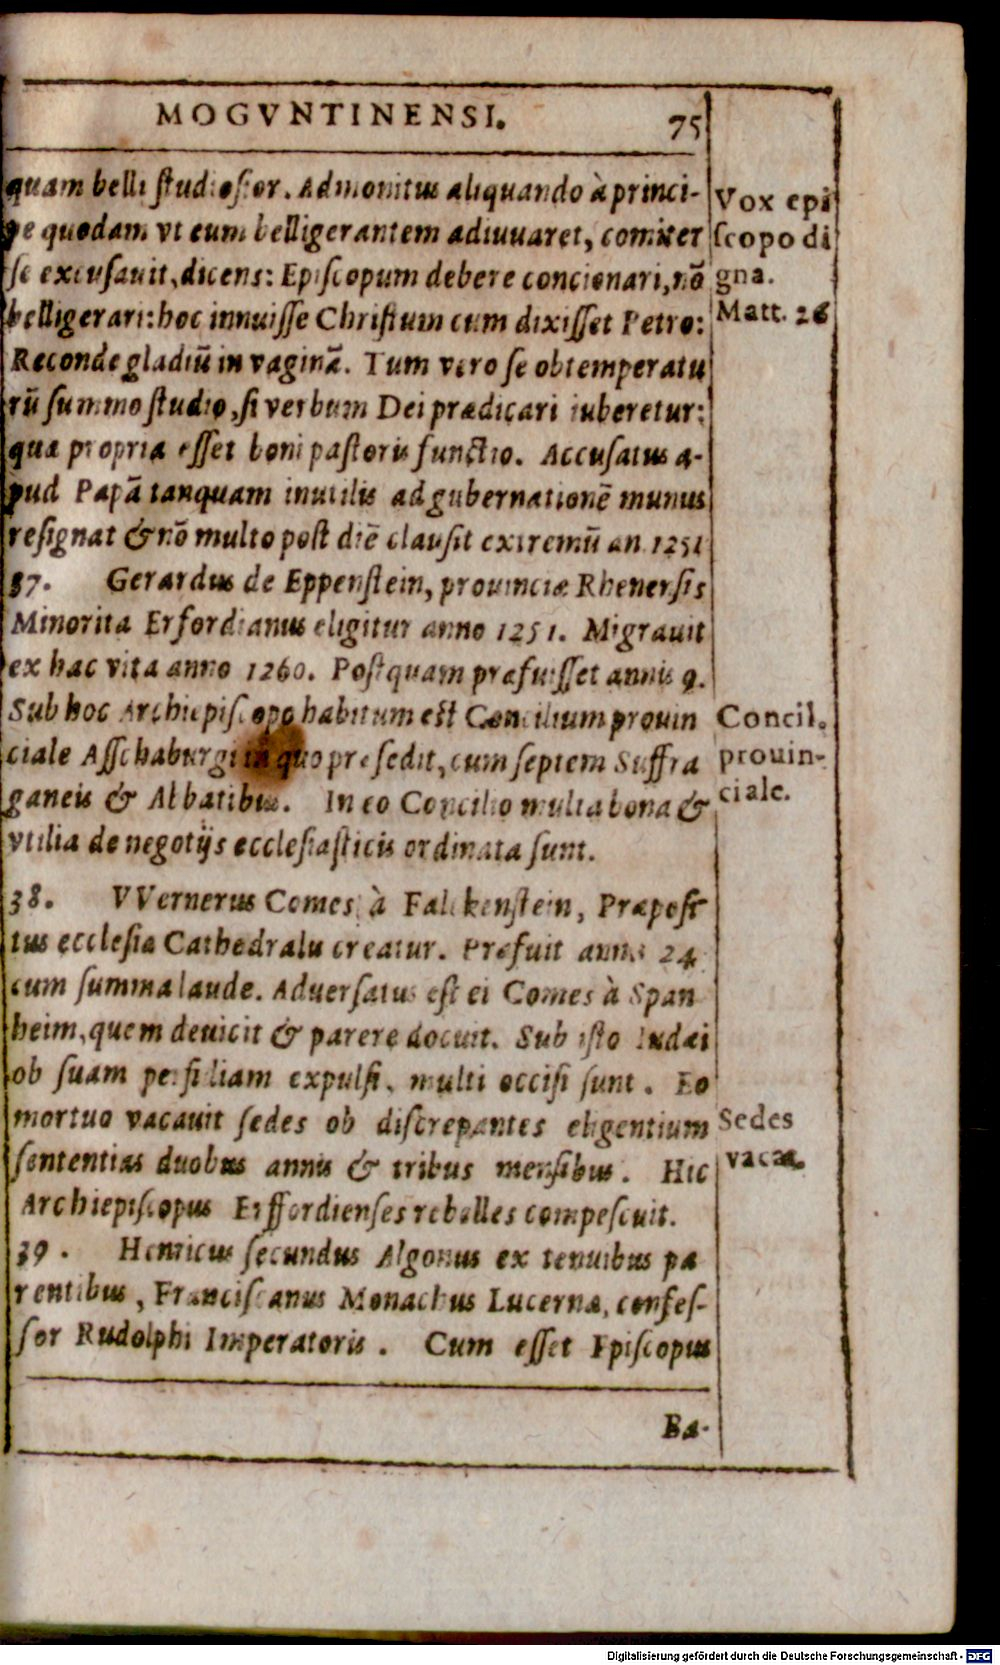 MOGVNTINENSI. 75
quam belli ſtudioſior. Admonitus aliquando à princi-
pe quodam vt eum belligerantem adiuuaret, comiter
ſe excuſauit, dicens: Epiſcopum debere concionari, nō
belligerari: hoc innuiſſe Chriſtum cum dixiſſet Petro:
Reconde gladiū in vaginā. Tum vero ſe obtemperatu
rū ſummo ſtudio, ſi verbum Dei prædicari iuberetur:
quæ propria eſſet boni paſtoris functio. Accuſatus a-
pud Papā tanquam inutilis ad gubernationē munus
reſignat & nō multo poſt diē clauſit extremū an. 1251
37. Gerardus de Eppenſtein, prouinciæ Rhenenſis
Minorita Erfordianus eligitur anno 1251. Migrauit
ex hac vita anno 1260. Poſtquam præfuiſſet annis 9.
Sub hoc Archiepiſcopo habitum eſt Concilium prouin
ciale Aſſchaburgi in quo preſedit, cum ſeptem Suffra
ganeis & Abbatibus. In eo Concilio multa bona &
vtilia de negotijs eccleſiaſticis ordinata ſunt.
38. VVernerus Comes à Falckenſtein, Præpoſi
tus eccleſiæ Cathedralis creatur. Præfuit annis 24
cum ſumma laude. Aduerſatus eſt ei Comes à Span
heim, quem deuicit & parere docuit. Sub iſto Iudæi
ob ſuam perfidiam expulſi, multi occiſi ſunt. Eo
mortuo vacauit ſedes ob diſcrepantes eligentium
ſententias duobus annis & tribus menſibus. Hic
Archiepiſcopus Erffordienſes rebelles compeſcuit.
39. Henricus ſecundus Algonus ex tenuibus pa
rentibus, Franciſcanus Monachus Lucernæ, confeſ-
ſor Rudolphi Imperatoris. Cum eſſet Epiſcopus
Ba-
Vox epi
ſcopo di
gna.
Matt. 26
Concil.
prouin-
ciale.
Sedes
vacat.
Digitalisierung gefördert durch die Deutsche Forschungsgemeinschaft - DFG